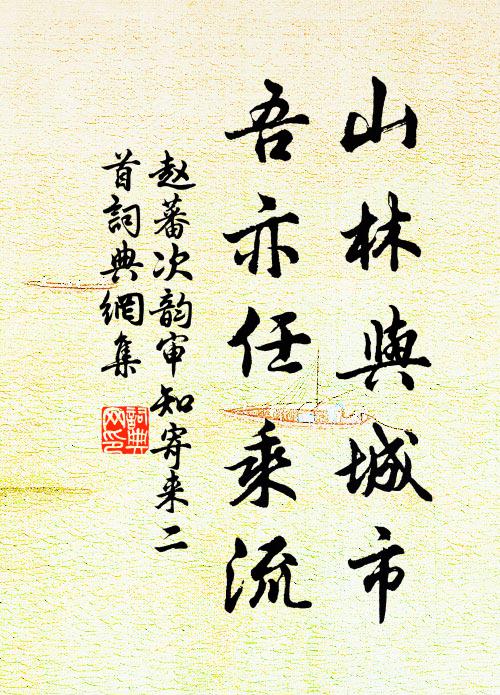 山林與城市
吾亦任乘流
赵蕃次韵审知寄来二
首詞典網集
詞典
网印